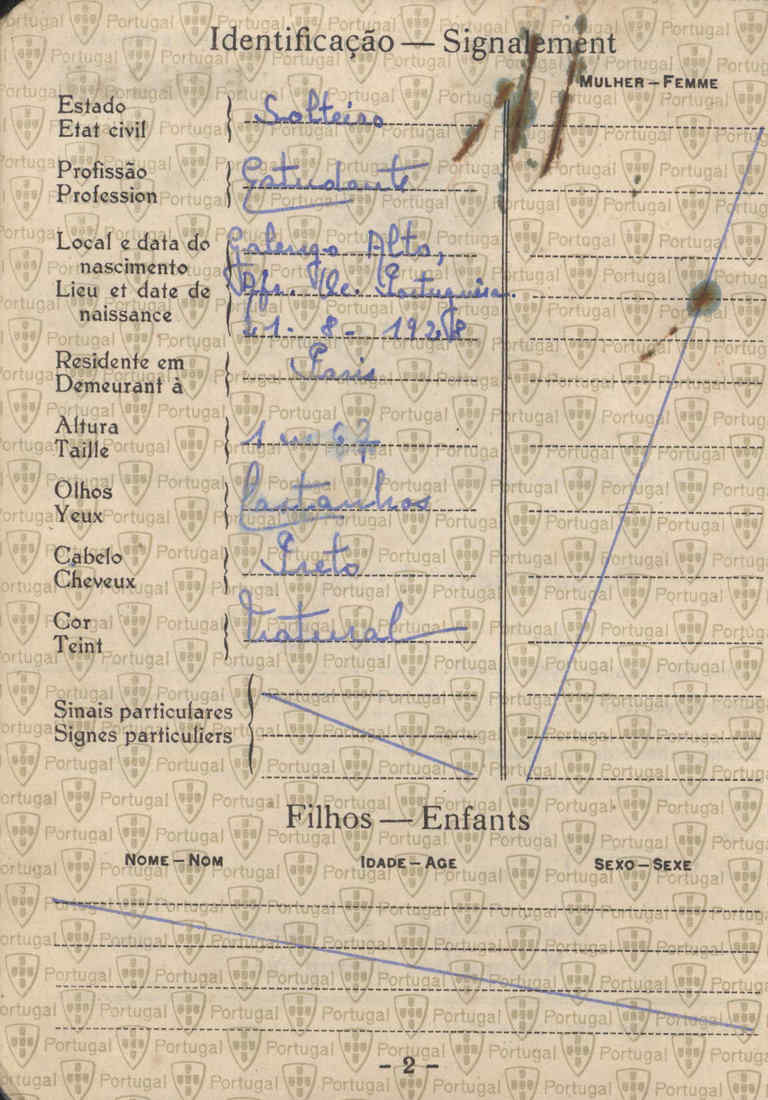 Identificação — Signalement
MULHER – FEMME
Estado
Etat civil
Solteiro
Profissão
Profession
Estudante
Local e data do
nascimento
Lieu et date de
naissance
Golungo Alto,
Afr. Oc. Portuguesa.
21 - 8 - 1928
Residente em
Demeurant à
Paris
Altura
Taille
1 m 67
Olhos
Yeux
Castanhos
Cabelo
Cheveux
Preto
Cor
Teint
Natural
Sinais particulares
Signes particuliers
Filhos — Enfants
NOME – NOM IDADE – AGE SEXO – SEXE
- 2 -